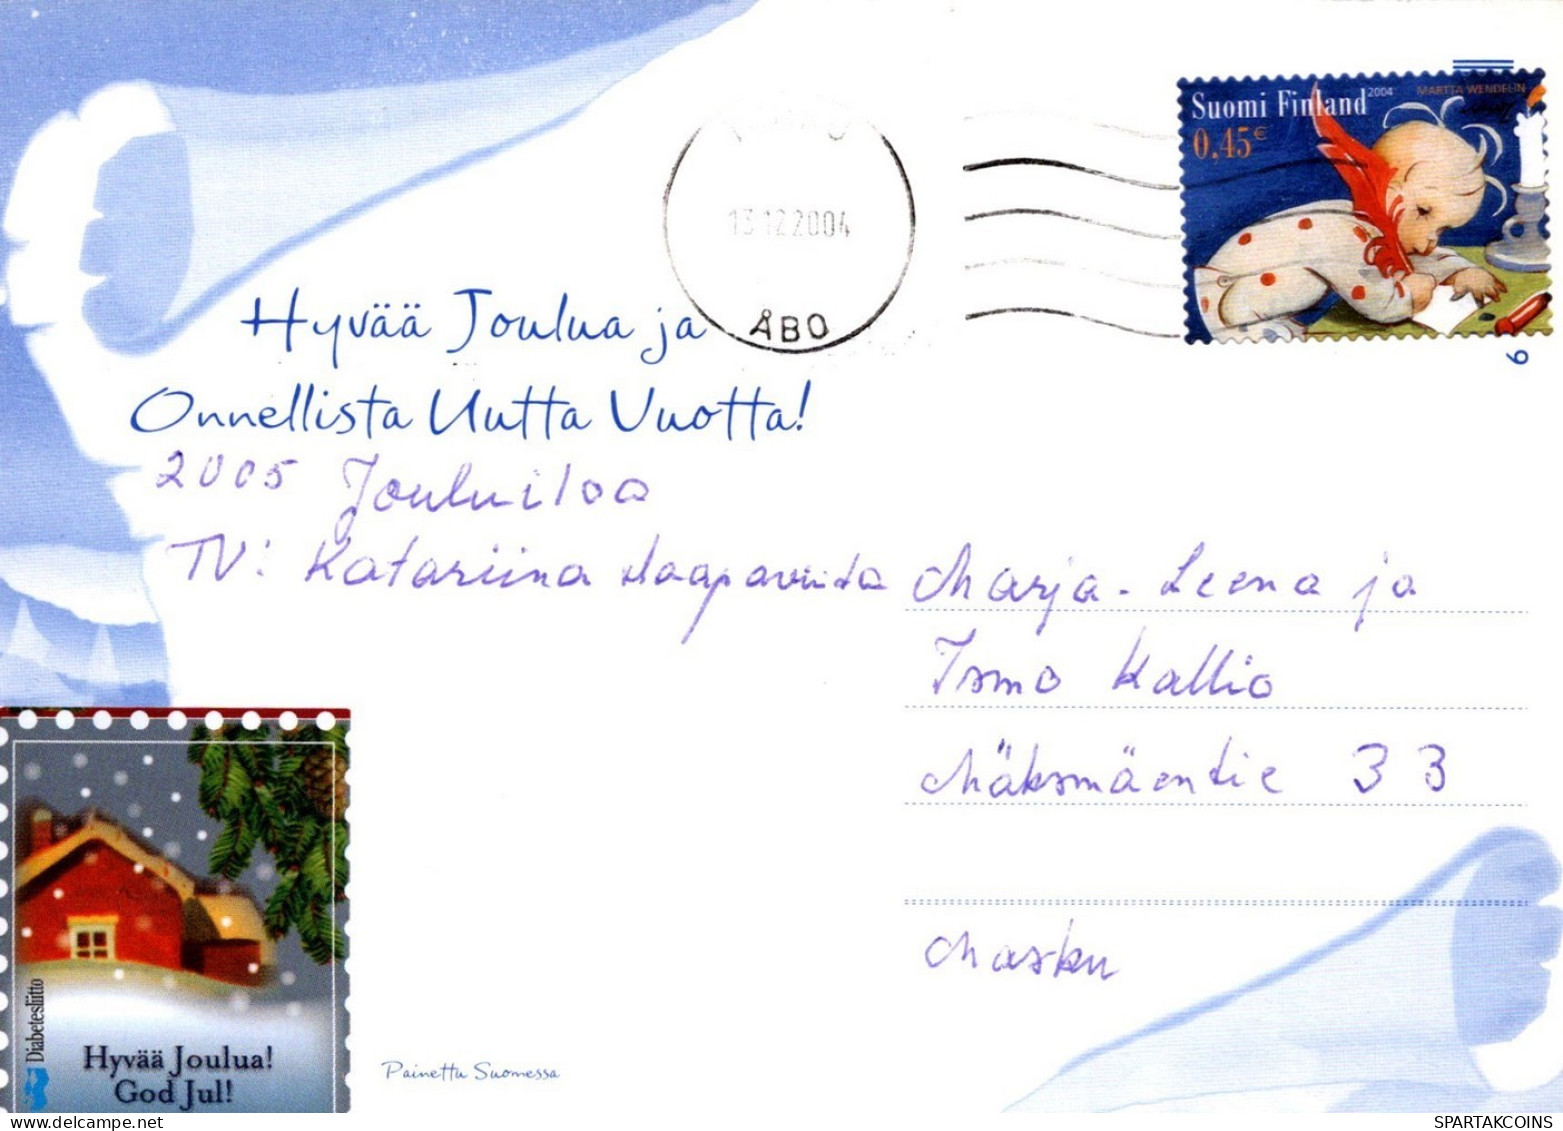 Suomi Finland 2004 MARTTA WENDELIN
0,45€
13 12 2004
ÅBO
6
Hyvää Joulua ja
Onnellista Uutta Vuotta!
2005 Jouluiloa
TV: Katariina
Marja-Leena ja
Ismo Kallio
Mäksmäentie 33
Masku
Diabetesliitto
Hyvää Joulua!
God Jul!
Painettu Suomessa
SPARTAKCOINS